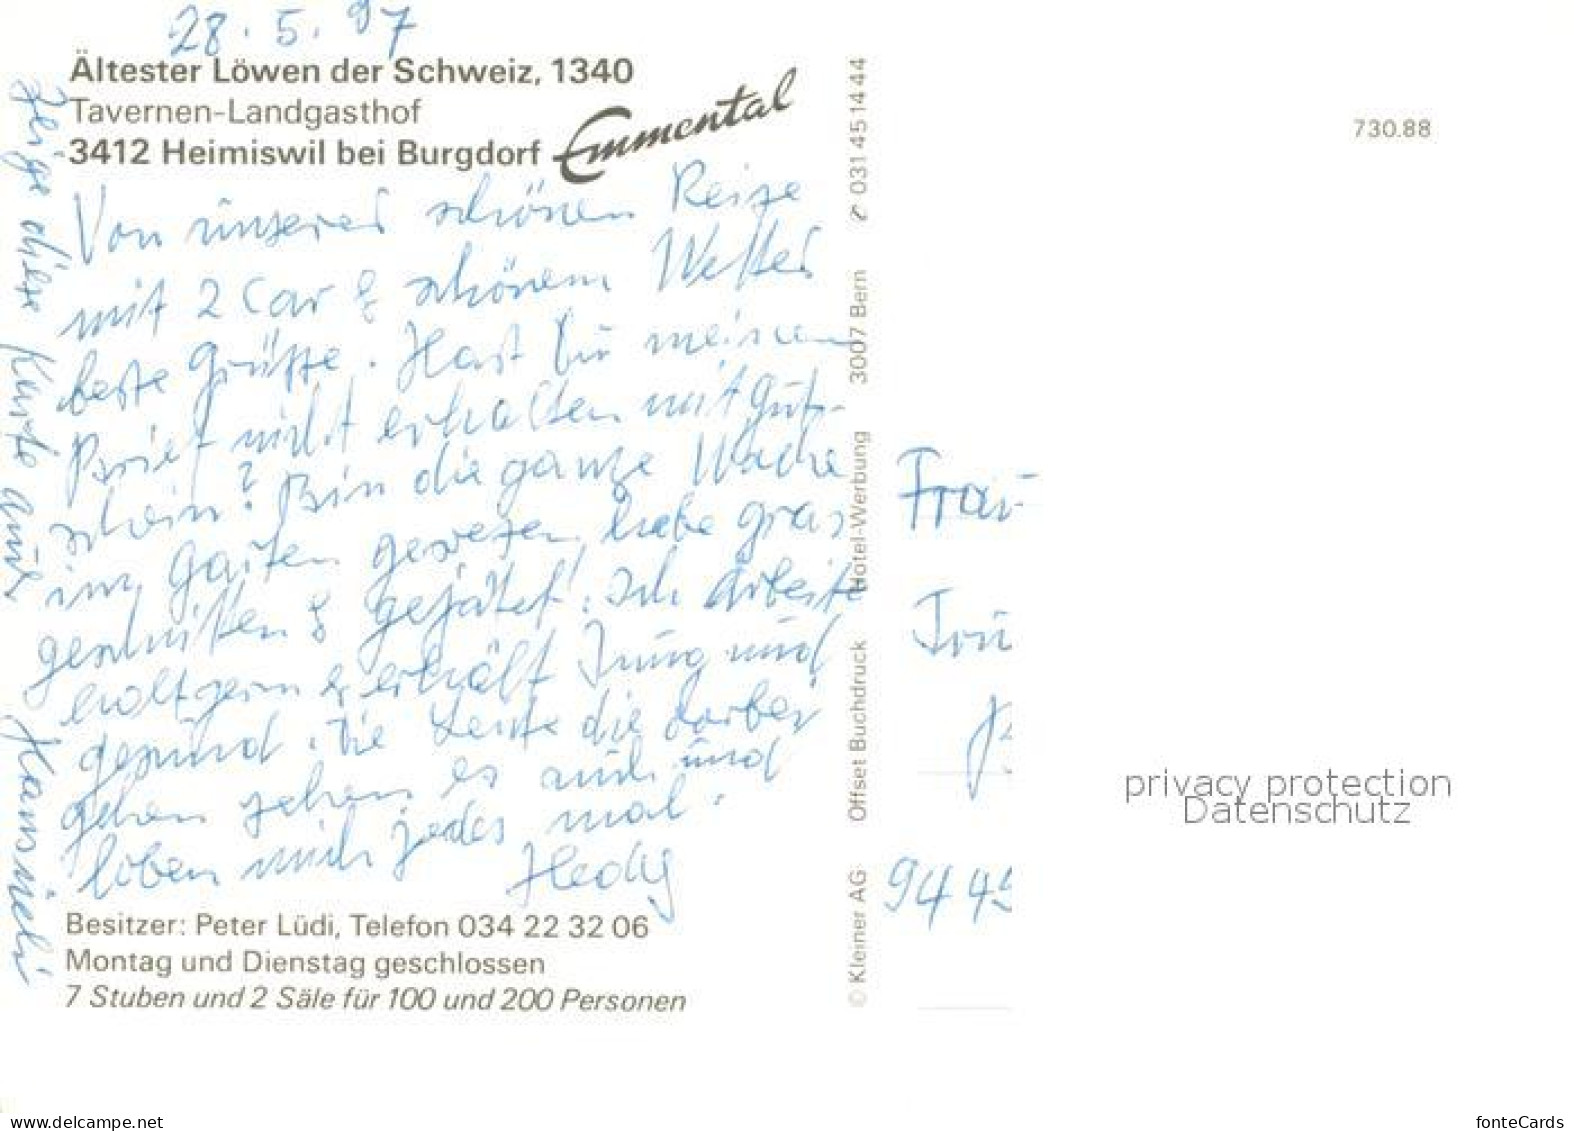 28. 5. 97
Ältester Löwen der Schweiz, 1340
Tavernen-Landgasthof
3412 Heimiswil bei Burgdorf Emmental
Von unserer schönen Reise
mit 2 Car & schönem Wetter
beste Grüsse. Hast Du meinen
Brief nicht erhalten mit Gut-
schein? Bin die ganze Woche
im Garten gewesen, habe gras
geschnitten & gejätet! Ich arbeite
halt gern & erhält Jung und
gesund. Die Leute die vorbei
gehen sehen es auch und
loben mich jedes mal.
Hedy
Zeige diese Karte auch
Hansueli
Besitzer: Peter Lüdi, Telefon 034 22 32 06
Montag und Dienstag geschlossen
7 Stuben und 2 Säle für 100 und 200 Personen
© Kleiner AG Offset Buchdruck Hotel-Werbung 3007 Bern ✆ 031 45 14 44
730.88
Frau
Trü
944
privacy protection
Datenschutz
www.delcampe.net
fonteCards